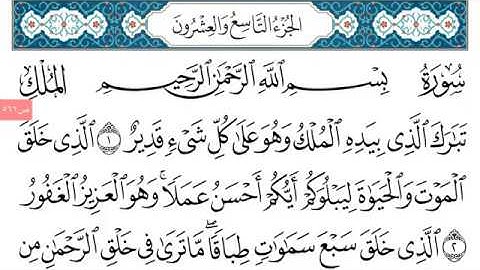 الجزء التاسع والعشرون
سورة بسم الله الرحمن الرحيم الملك
ص ٥٦٦
تَبَٰرَكَ ٱلَّذِى بِيَدِهِ ٱلْمُلْكُ وَهُوَ عَلَىٰ كُلِّ شَىْءٍ قَدِيرٌ ١ ٱلَّذِى خَلَقَ
ٱلْمَوْتَ وَٱلْحَيَوٰةَ لِيَبْلُوَكُمْ أَيُّكُمْ أَحْسَنُ عَمَلًا ۚ وَهُوَ ٱلْعَزِيزُ ٱلْغَفُورُ
٢ ٱلَّذِى خَلَقَ سَبْعَ سَمَٰوَٰتٍ طِبَاقًا ۖ مَّا تَرَىٰ فِى خَلْقِ ٱلرَّحْمَٰنِ مِن